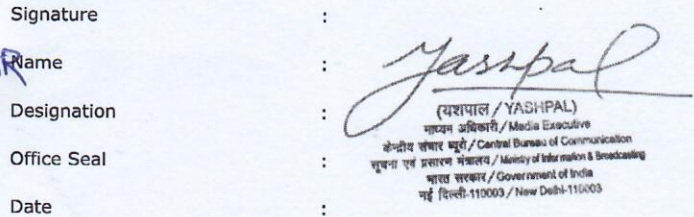 Signature :
R
Name :
Yashpal
Designation :
(यशपाल / YASHPAL)
माध्यम अधिकारी / Media Executive
केन्द्रीय संचार ब्यूरो / Central Bureau of Communication
Office Seal :
सूचना एवं प्रसारण मंत्रालय / Ministry of Information & Broadcasting
भारत सरकार / Government of India
नई दिल्ली-110003 / New Delhi-110003
Date :